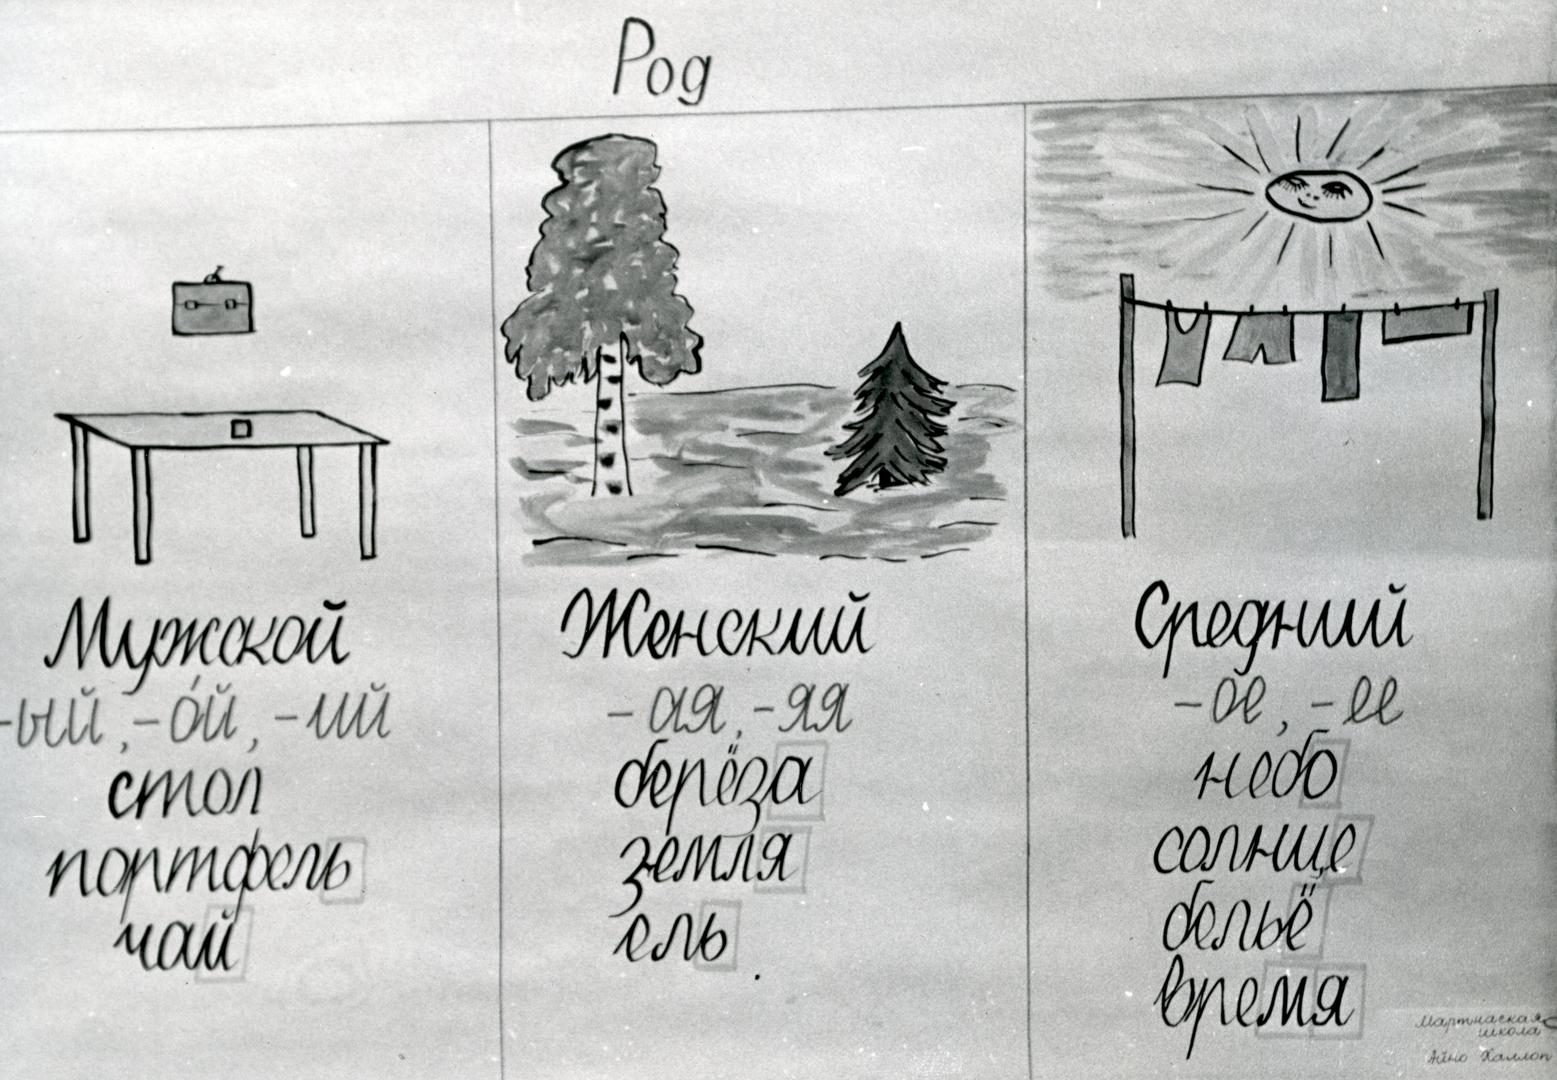 Род
Мужской
-ый, -о́й, -ий
стол
портфель
чай
Женский
-ая, -яя
берёза
земля
ель
Средний
-ое, -ее
небо
солнце
бельё
время
Мартнаская
школа
Айно Халлоп